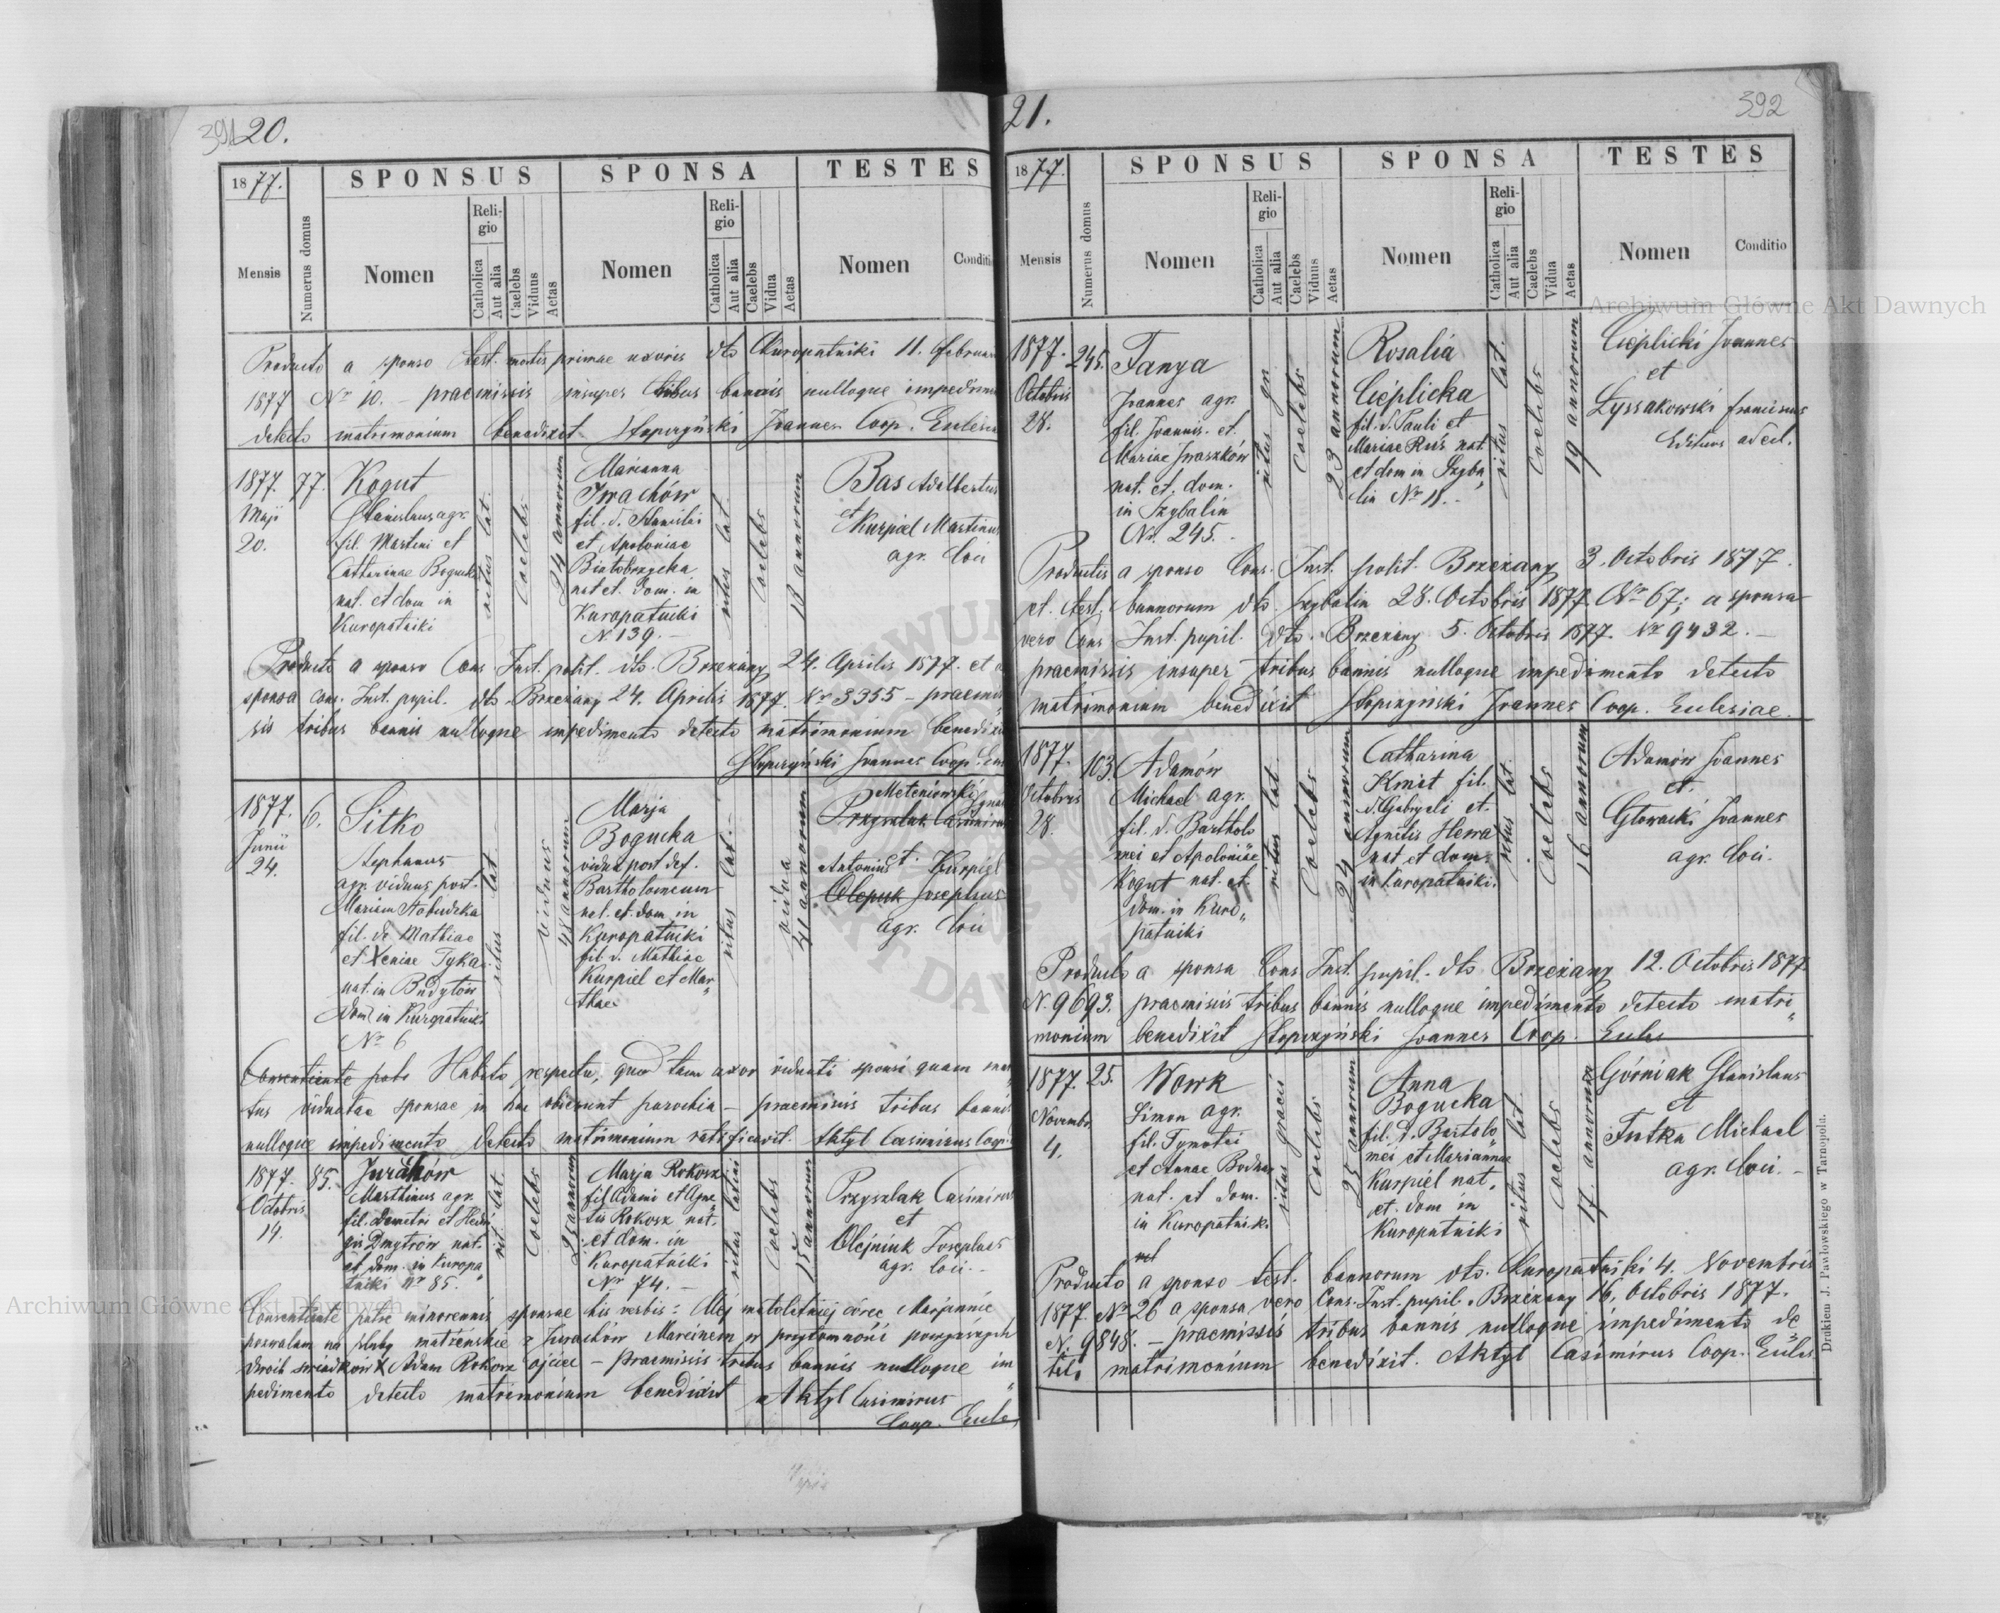 391
20.
1877.
SPONSUS
SPONSA
TESTES
Mensis
Numerus domus
Nomen
Religio
Catholica
Aut alia
Caelebs
Viduus
Aetas
Nomen
Religio
Catholica
Aut alia
Caelebs
Vidua
Aetas
Nomen
Conditio
Producto a sponso test. mortis primae uxoris dto Kuropatniki 11. Februar
1877 Nr 10. – praemissis insuper tribus bannis nulloque impedime
detecto matrimonium benedixit Słopczyński Joannes Coop. Eccles
1877.
Maji
20.
77.
Kogut
Stanislaus agr.
fil. Martini et
Catharinae Bogucka
nat. et dom in
Kuropatniki
ritus lat.
Coelebs
24 annorum
Marianna
Iwachów
fil. d. Stanislai
et Apoloniae
Białobrzycka
nat et. Dom. in
Kuropatniki
N. 139. –
ritus lat.
Coelebs
18 annorum
Bas Adalbertus
et Kurpiel Martinus
agr. loci
Producto a sponso Cons Inst. polit. dto. Brzeżany 24. Aprilis 1877. et a
sponsa Cons. Inst. pupil. dto. Brzeżany 24. Aprilis 1877. Nr 3355 – praemis
sis tribus bannis nulloque impedimento detecto matrimonium benedixit
Słopczyński Joannes Coop. Eccl
1877.
Junii
24.
6.
Sitko
Stephanus
agr. viduus post.
Mariam Stobudzka
fil. de Mathiae
et Xeniae Tyka
nat. in Budytów
Dom in Kuropatniki
Nr 6
ritus lat.
viduus
48 annorum
Marja
Bogucka
vidua post def.
Bartholomeum
nat. et. dom. in
Kuropatniki
fil. d. Mathiae
Kurpiel et Mar„
thae
ritus lat. –
vidua
41 annorum
Meteniowski Ignat
Przyszlak Casimirus
et.
Antonius Kurpiel
Olejnik Josephus
agr. loci
Consentiente patre Habito respectu, quod tam uxor viduati sponsi quam mari
tus viduatae sponsae in hac obierunt parochia – praemissis tribus bannis
nulloque impedimento detecto matrimonium ratificavit. Aktyl Casimirus Coop.
1877.
Octobris
14.
85.
Jurachów
Marthinus agr.
fil. Demetri et Hedvi
gis Dmytrów nat.
et Dom. in Kuropa„
tniki Nr 85.
rit. lat.
Coelebs
25 annorum
Marja Rokosz
fil Adami et Agne„
tis Rokosz nat.
et dom. in
Kuropatniki
Nr 74. –
ritus latini
Coelebs
15 annorum
Przyszlak Casimirus
et
Olejniuk Josephus
agr. loci. –
Consentiente patre minorennis sponsae his verbis: Mej małoletniej córce Marjannie
pozwalam na śluby małżenskie z Jurachów Marcinem w przytomności powyższych
dwóch świadków X Adam Rokosz ojciec – praemissis tribus bannis nulloque im„
pedimento detecto matrimonium benedixit Aktyl Casimirus
Coop. Eccle
21.
392
1877.
SPONSUS
SPONSA
TESTES
Mensis
Numerus domus
Nomen
Religio
Catholica
Aut alia
Caelebs
Viduus
Aetas
Nomen
Religio
Catholica
Aut alia
Caelebs
Vidua
Aetas
Nomen
Conditio
1877.
Octobris
28.
245.
Fanya
Joannes agr.
fil. Joannis. et.
Mariae Iwaszków
nat. et. dom.
in Szybalin
Nr. 245. –
ritus gr.
Coelebs
23 annorum
Rosalia
Cieplicka
fil. d. Pauli et
Mariae Ruś nat.
et dom in Szyba„
lin Nr 11. –
ritus lat.
Coelebs
19 annorum
Cieplicki Joannes
et
Łyssakowski Franciscus
Edituus ad Ecl.
Productis a sponso Cons. Inst. polit. Brzeżany 3. Octobris 1877.
et. test. bannorum dto. Szybalin 28. Octobris 1877. Nr 67; a sponsa
vero Cons Inst. pupil. dto. Brzeżany 5. Octobris 1877. Nr 9432. –
praemissis insuper tribus bannis nulloque impedimento detecto
matrimonium benedixit Słopczyński Joannes Coop. Eclesiae.
1877.
Octobris
28.
103.
Adamów
Michael agr.
fil. d. Bartholo
mei et Apoloniae
Kogut nat. et.
Dom. in Kuro„
patniki
ritus lat.
Coelebs
24 annorum
Catharina
Kmit fil.
d. Gabryeli et.
Agnetis Herra
nat et dom.
in Kuropatniki.
ritus lat.
Coelebs
16 annorum
Adamów Joannes
et.
Głowacki Joannes
agr. loci.
Producto a sponsa Cons Inst. pupil. dto Brzeżany 12. Octobris 1877.
N. 9693. praemissis tribus bannis nulloque impedimento detecto matri„
monium benedixit Słopczyński Joannes Coop. Eccles
1877.
Novembr.
4.
25.
Wowk
Simon agr.
fil. Tymotei
et Annae Bodnar
nat. et dom.
in Kuropatnik.
ritus graeci
Coelebs
25 annorum
Anna
Bogucka
fil. d. Bartolo„
mei et Mariannae
Kurpiel nat.
et. dom in
Kuropatniki
ritus lat.
Coelebs
17. annorum
Górniak Stanislaus
et
Futka Michael
agr. loci. –
Producto a sponso test. bannorum dto. Kuropatniki 4. Novembris
1877 Nr 26 a sponsa vero Cons. Inst. pupil. Brzeżany 16. Octobris 1877.
N. 9848. – praemissis tribus bannis nulloque impedimento de„
tecto matrimonium benedixit. Aktyl Casimirus Coop. Eccles
Drukiem J. Pawłowskiego w Tarnopolu.
Archiwum Główne Akt Dawnych
Archiwum Główne Akt Dawnych